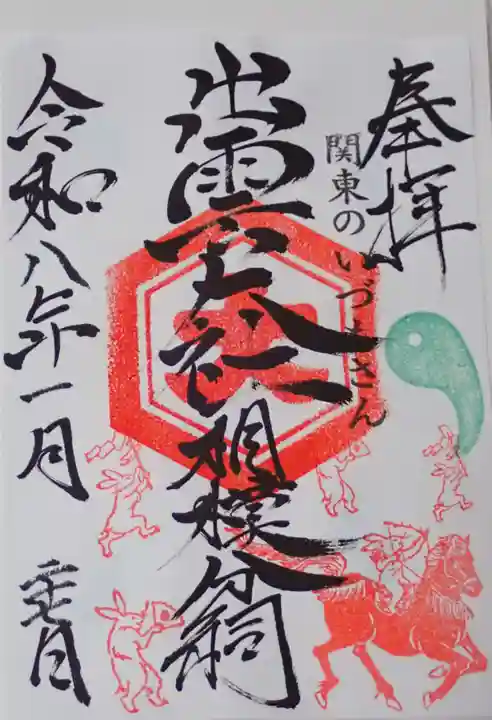 奉拝
関東の
いづもさん
出雲大社相模分祠
令和八年一月